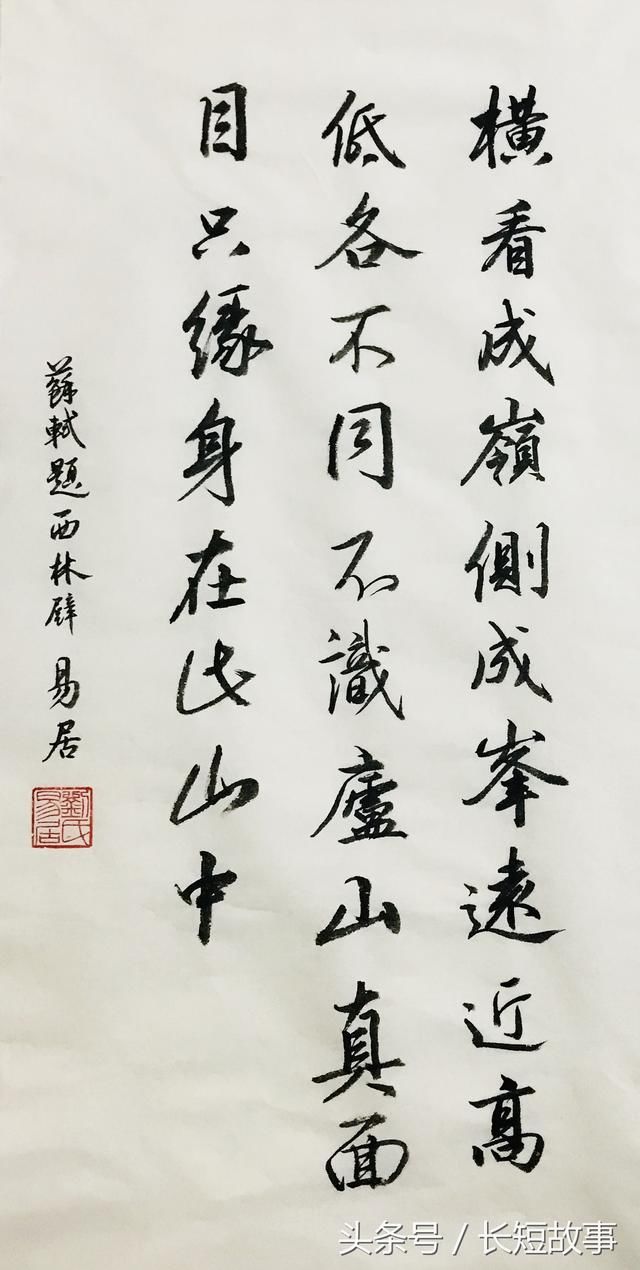 橫看成嶺側成峯遠近高
低各不同不識廬山真面
目只緣身在此山中
蘇軾題西林壁 易居
劉氏易居
头条号 / 长短故事